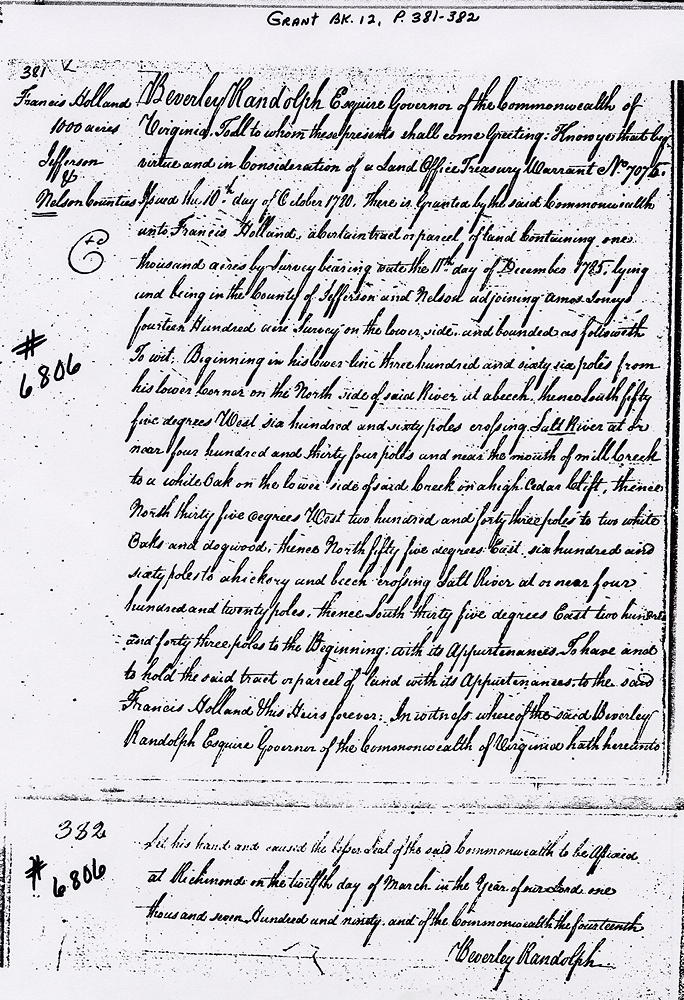 GRANT BK. 12, P. 381-382
381
Francis Holland
1000 acres
Jefferson
&
Nelson Counties
#
6806
Beverley Randolph Esquire Governor of the Commonwealth of
Virginia, To all to whom these presents shall come Greeting: Know ye that by
virtue and in Consideration of a Land Office Treasury Warrant No. 7076.
Issued the 10th day of October 1780. There is Granted by the said Commonwealth
unto Francis Holland, a Certain tract or parcel of land Containing one
thousand acres by Survey bearing date the 11th day of December 1785, lying
and being in the County of Jefferson and Nelson adjoining Amos
fourteen Hundred acre Survey on the lower side. and bounded as followeth
To wit. Beginning in his lower line three hundred and sixty six poles from
his lower Corner on the North side of said River at a beech, thence South fifty
five degrees West six hundred and sixty poles crossing Salt River at or
near four hundred and thirty four poles and near the mouth of mill Creek
to a white Oak on the lower side of said Creek in a high Cedar Clift, thence
North thirty five degrees West two hundred and forty three poles to two white
Oaks and dogwood, thence North fifty five degrees East six hundred and
sixty poles to a hickory and beech crossing Salt River at or near four
hundred and twenty poles, thence South thirty five degrees East two hundred
and forty three poles to the Beginning; with its Appurtenances. To have and
to hold the said tract or parcel of land with its Appurtenances to the said
Francis Holland & his Heirs forever; In witness whereof the said Beverley
Randolph Esquire Governor of the Commonwealth of Virginia hath hereunto
382
#
6806
Set his hand and caused the lesser Seal of the said Commonwealth to be Affixed
at Richmond on the twelfth day of March in the Year of our Lord one
thousand seven Hundred and ninety. and of the Commonwealth the fourteenth
Beverley Randolph